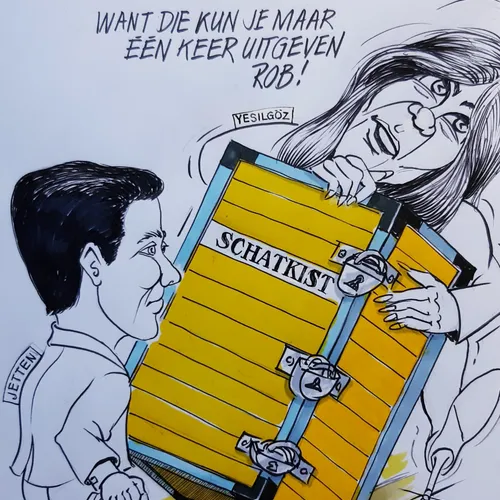 WANT DIE KUN JE MAAR
ÉÉN KEER UITGEVEN
ROB!
YESILGÖZ
SCHATKIST
JETTEN